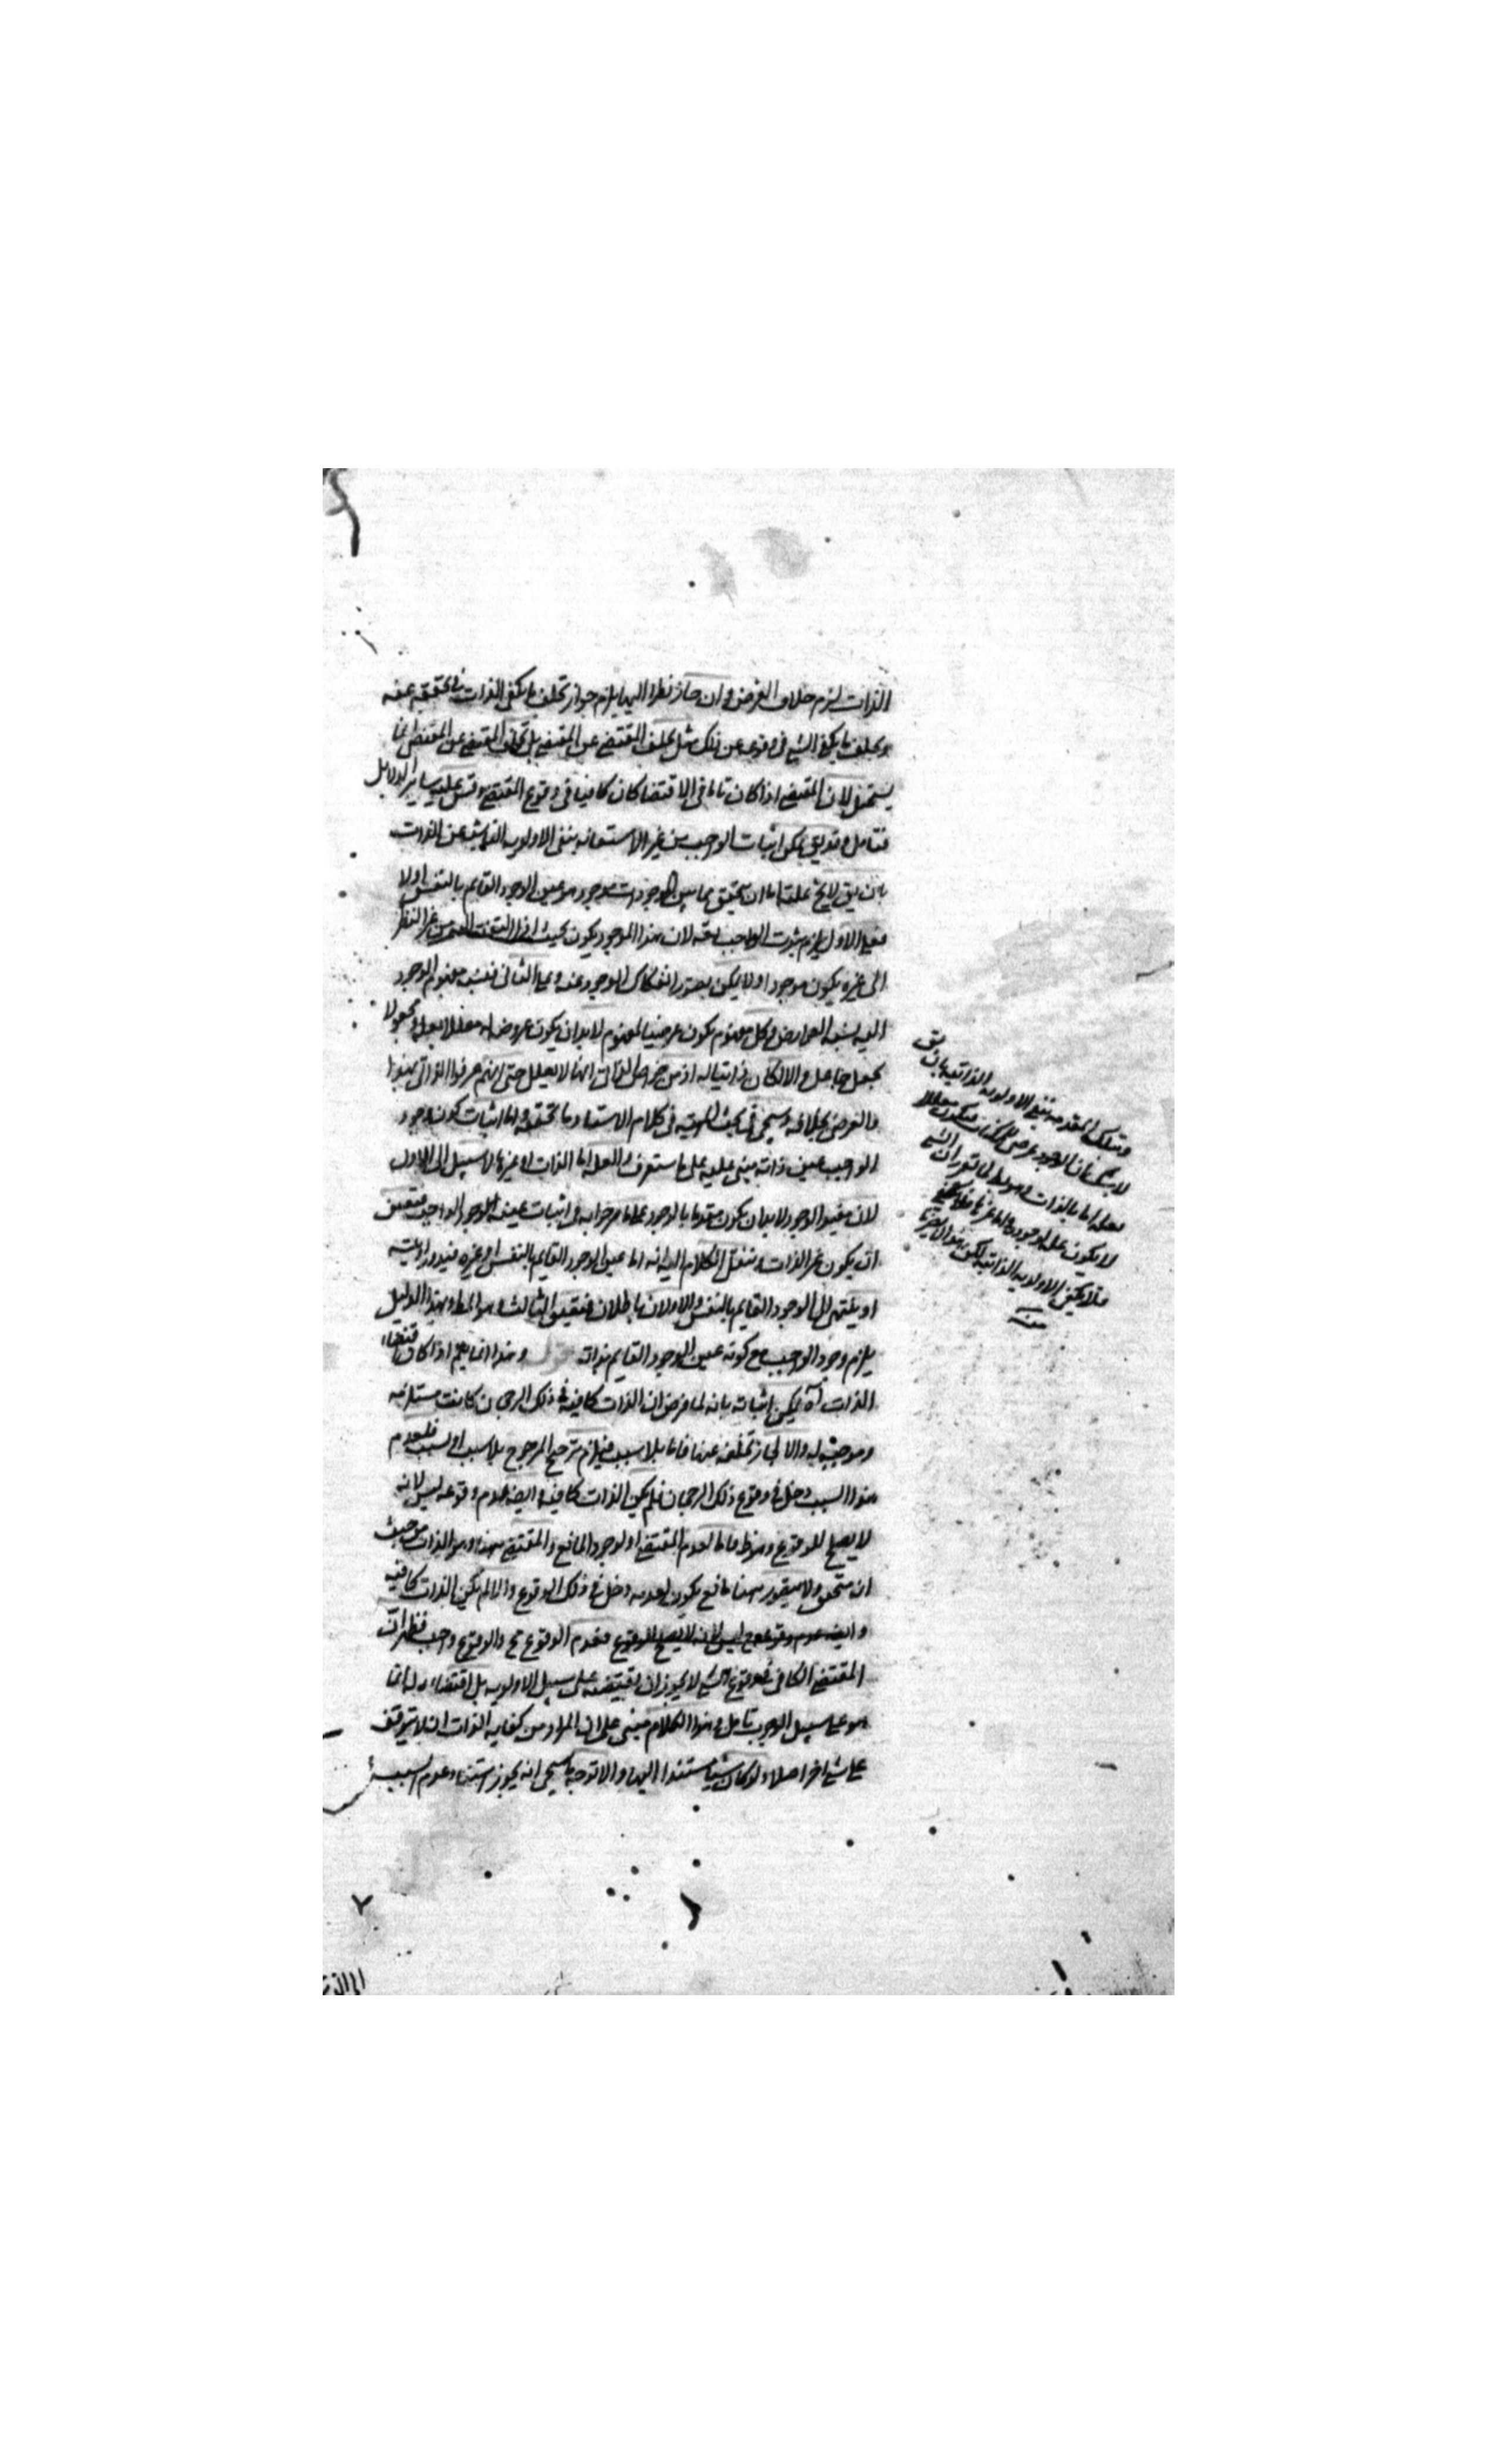 الذات لزم خلاف الفرض وان جاز نظرا اليها يلزم جواز تخلف ما يكفى الذات فى تحققه عنه
وتخلف ما يكفى الشىء فى وقوعه عن ذلك مثل تخلف المقتضى عن المقتضى بل تخلف المقتضى عن المقتضى انما
يستحيل لان المقتضى اذا كان تاما فى الاقتضا كان كافيا فى وقوع المقتضى وقس عليه ساير الدلايل
فتامل وقد يق يمكن اثبات الواجب من غير الاستعانه بنفى الاولويه الناشيه عن الذات
بان يق لا يخ علينا اما ان يتحقق فيما بين الموجودات موجود هو عين الوجود القايم بالنفس او لا
فعلى الاول يلزم ثبوت الواجب لانه لان هذا الموجود يكون بحيث اذا التفت اليه من غير النظر
الى غيره يكون موجودا ولا يمكن تصور انفكاك الوجود عنه وعلى الثانى فنسبه مفهوم الوجود
اليه نسبه العوارض وكل مفهوم يكون عرضيا لمفهوم لا بد ان يكون عروضه له معللا بعله ومجعولا
بجعل جاعل والا لكان ذاتيا له اذ من خواص الذاتى انها لا يعلل حتى انهم عرفوا الذاتى بهذا
والفرض بخلافه وسيجى فى بحث الهويه فى كلام الاستاد ما تحققه واما اثبات كون وجود
الواجب عين ذاته مبنى عليه على ما ستعرف والعله اما الذات او غيرها لا سبيل الى الاول
لان مفيد الوجود لا بد ان يكون مقدما بالوجود على ما صرحوا به فى اثبات عينيه الوجود للواجب فتعين
ان يكون غير الذات وننقل الكلام اليه انه اما عين الوجود القايم بالنفس او غيره فيدور او يتسه
او ينتهى الى الوجود القايم بالنفس والاولان باطلان فتعين الثالث وهو المط وبهذا الدليل
يلزم وجود الواجب مع كونه عين الوجود القايم بذاته وهذا انما يتم اذا كان اقتضاء
الذات اه يمكن اثباته بانه لما فرض ان الذات كافيه فى ذلك الرجحان كانت مستلزمه
وموجبه له والا لجاز تخلفه عنها فاما بلا سبب فيلزم ترجح المرجوح بلا سبب او لسبب فلعدم
هذا السبب دخل فى وقوع ذلك الرجحان فلم يكن الذات كافيه وايضه عدم وقوعه ليس لانه
لا يصلح للوقوع وهو ظ فاما لعدم المقتضى او لوجود المانع والمقتضى هنا وهو الذات من حيث
ان متحقق ولا يتصور هنا مانع يكون لعدمه دخل فى ذلك الوقوع والا لم تكن الذات كافيه
وايضه عدم وقوعه ليس لانه لا يصلح للوقوع فعدم الوقوع مح والوقوع واجب فظهر ان
المقتضى الكافى فى وقوع الشىء لا يجوز ان يقتضيه على سبيل الاولويه بل اقتضاءه له انما
هو على سبيل الوجوب تامل وهذا الكلام مبنى على ان المراد من كفايه الذات ان لا يتوقف
على شىء اخر اصلا ولو كان شيئا مستندا اليها والا توجه ما سيجى انه يجوز استناد عدم السبب
وتلك المقدمه بنفى الاولويه الذاتيه بان يق
لا شك ان الوجود عرضى للممكنات فيكون معللا
معله اما بالذات وهو بط لما تقرر ان الشىء
لا يكون عله لوجوده واما غيرها فلا يكفى
فلا يكفى الاولويه الذاتيه لكن هذا
منه